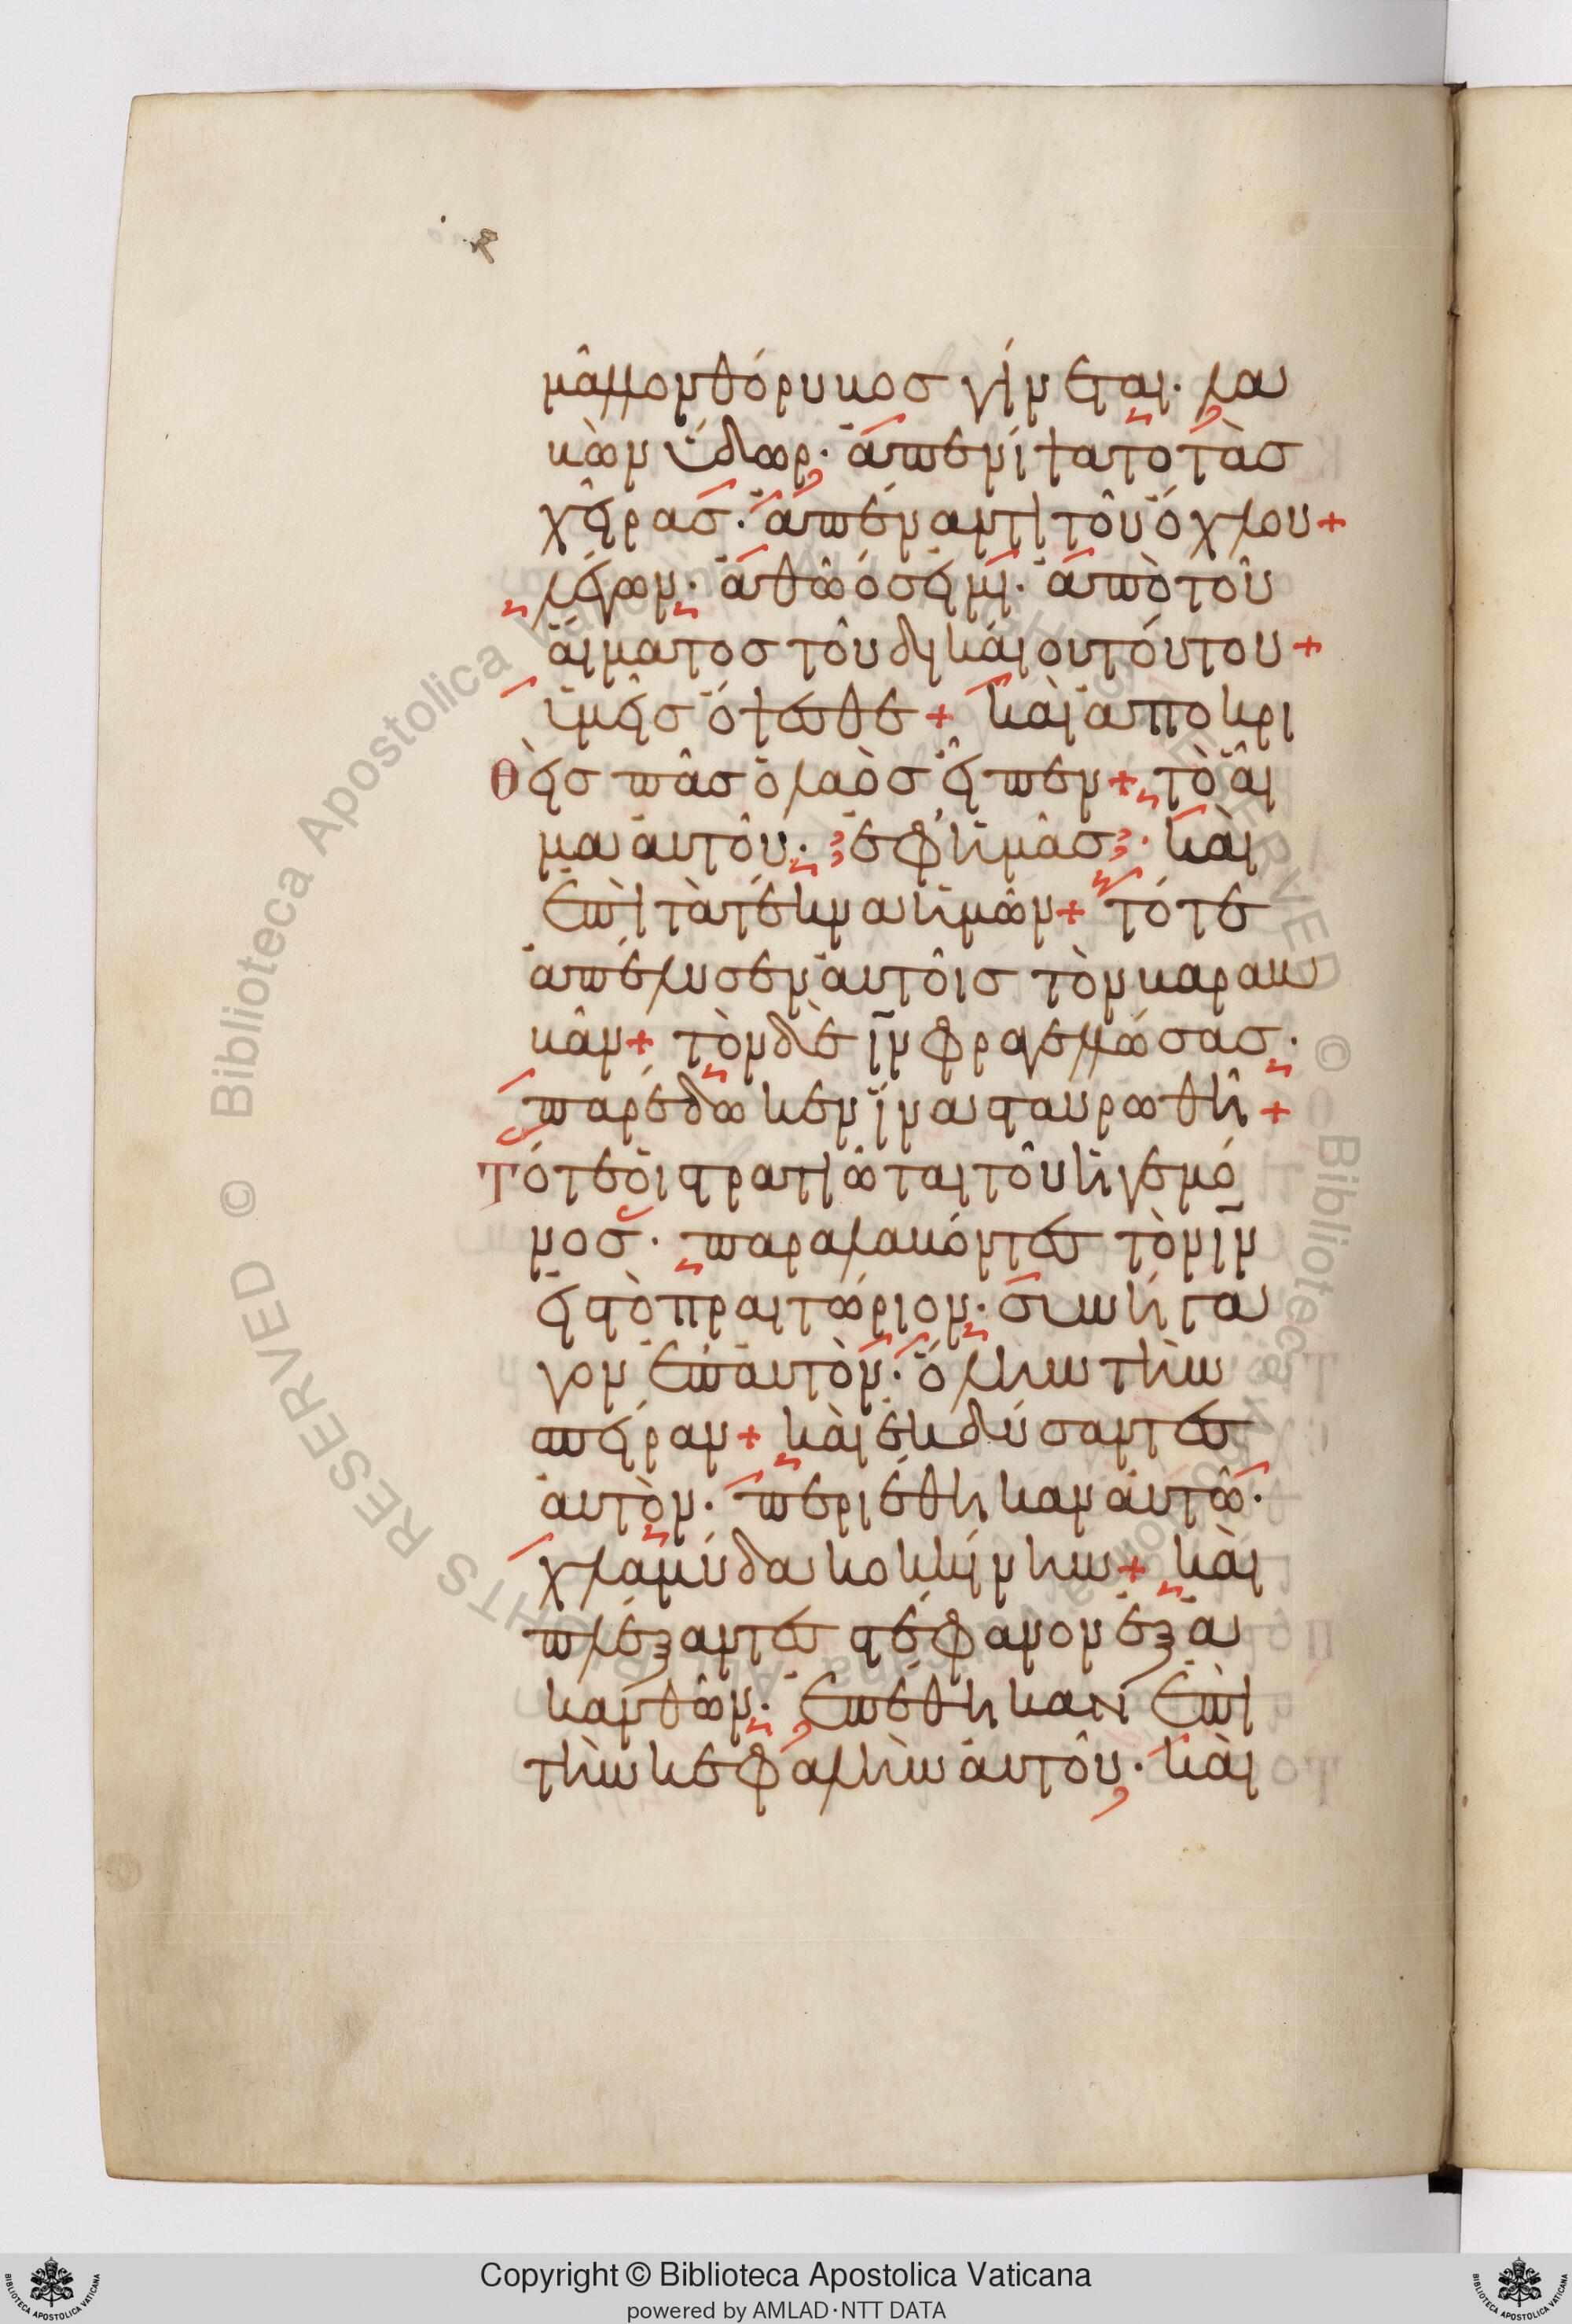 μᾶλλον θόρυβος γίνεται· λα
βὼν ὕδωρ· ἀπενίψατο τὰς
χεῖρας· ἀπέναντι τοῦ ὄχλου +
λέγων· ἀθῶός εἰμι· ἀπὸ τοῦ
αἵματος τοῦ δικαίου τούτου +
ὑμεῖς ὄψεσθε + καὶ ἀποκρι
θεὶς πᾶς ὁ λαὸς εἶπεν + τὸ αἷ
μα αὐτοῦ· ἐφ' ἡμᾶς· καὶ
ἐπὶ τὰ τέκνα ἡμῶν + τότε
ἀπέλυσεν αὐτοῖς τὸν βαραβ
βᾶν + τὸν δὲ ιν φραγελλώσας·
παρέδωκεν ἵνα σταυρωθῆ +
Τότε οἱ στρατιῶται τοῦ ἡγεμό
νος· παραλαβόντες τὸν ιν
εἰς τὸ πραιτώριον· συνήγα
γον ἐπ' αὐτὸν· ὅλην τὴν
σπεῖραν + καὶ ἐκδύσαντες
αὐτὸν· περιέθηκαν αὐτῶ·
χλαμύδα κοκκίνην + καὶ
πλέξαντες στέφανον ἐξ ἀ
κανθῶν· ἐπέθηκαν ἐπὶ
τὴν κεφαλὴν αὐτοῦ· καὶ
Copyright © Biblioteca Apostolica Vaticana
powered by AMLAD·NTT DATA